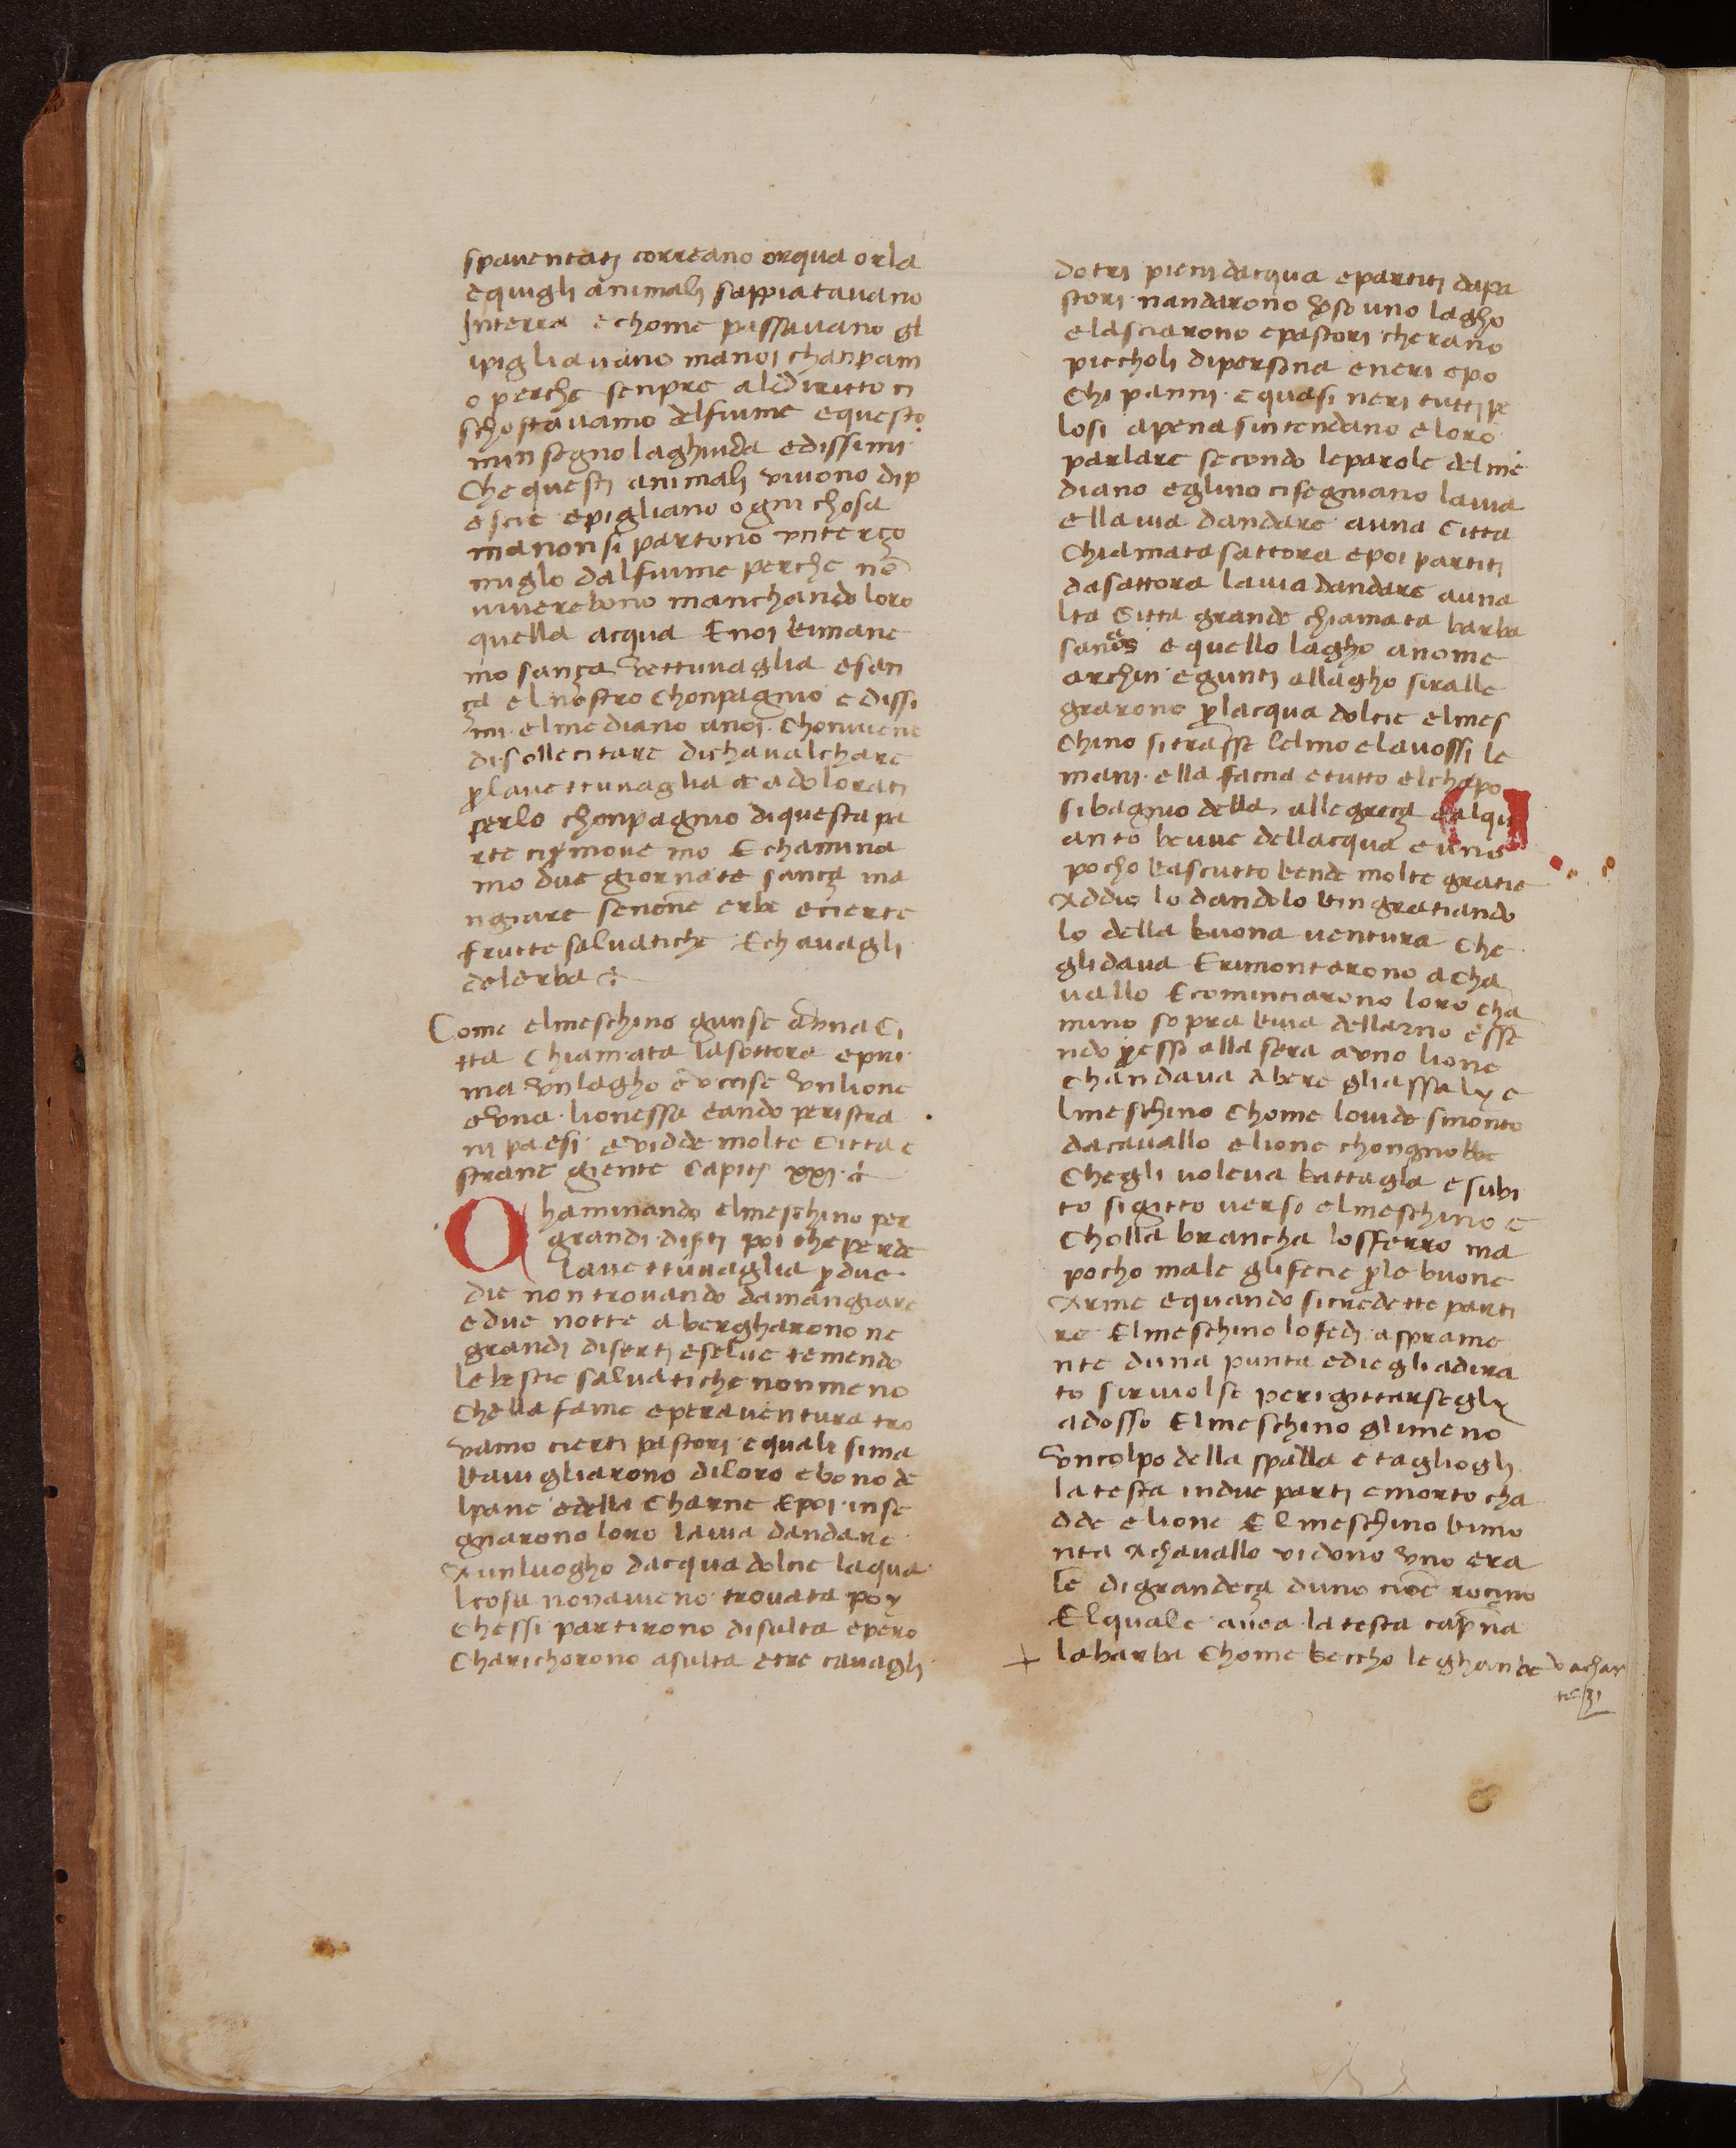 spauentatj correano orqua orla
equiglj animalj sappiatauano
Jnterra echome passauano gl
ipigliauano manoi chanpam
o perche senpre alediritto ci
schostauamo delfiume equesto
minsegno laghuida edissimi
Che questi animalj viuono dip
escie epigliano ognichosa
manonsi partono vnterço
miglo dalfiume perche nō
uiuerebono manchando loro
quella acqua Enoj Rimane
mo sança Vettuuaglia esan
ça elnostro Chonpagnio e dissi
mi elmediano anoi Chonuiene
disollecitare dichaualchare
p lauettuuaglia e adolorati
perlo chonpagnio diquesta pa
rte cimoue mo Echamina
mo due giornate sança ma
ngiare senōne erbe ecierte
frutte saluatiche Echauagli
delerba
Come elmeschino giunse avna Ci
tta Chiamata lasottora epri
ma Vnlagho e vccise Vnlione
eVna lionessa eando peristra
ni paesi euidde molte Citta e
strane giente Capitj xxj
Chaminando elmeschino per
grandi diserti poi che perde
lauettuuaglia p due
die non trouando damangiare
edue notte abergharono ne
grandi diserti eselue temendo
lebestie saluatiche nonmeno
Chella fame eperauentura tro
vamo cierti pastori equali sima
Rauigliarono diloro ebono de
lpane edella Charne Epoi inse
gniarono loro lauia dandare
Aunluogho dacqua dolcie laqua
lcosa nonaueno trouata poy
Chessi partirono disulta epero
Charichorono asulta etre cauagli
dotri pieni dacqua epartiti dapa
stori nandarono Vso uno lagho
elasciarono epastori cherano
piccholi dipersona eneri epo
Chi panni equasi neri tutti pe
losi apena sintendano eloro
parlare secondo leparole delme
diano eglino cisegnano lauia
ellauia dandare auna Citta
Chiamata sattora epoi partiti
dasattora lauia dandare auna
lta Citta grande chiamata barba
sanes equello lagho anome
archin egiunti allagho siralle
grarono p lacqua dolcie elmes
Chino sitrasse lelmo elauossi le
mani ella facia etutto elchapo
sibagnio della allegreça ealqu
anto beuue dellacqua euno
pocho Rasciutto Rende molte gratie
Addio lodandolo Ringratiando
lo della buona uentura Che
glidaua Erimonterono acha
uallo Ecominciarono loro cha
mino sopra Riua dellarno esse
ndo presso alla sera avno lione
Chandaua Abere gliassaly e
lmeschino Chome louide smonto
dacauallo elione chongnobbe
Chegli uoleua battagla esubi
to sigitto uerso elmeschino e
Cholla brancha losferro ma
pocho male glifecie p le buone
Arme equando sicredette parti
re Elmeschino lofedj asprame
nte duna punta ediegliadira
to siriuolse perigittarsegly
adosso Elmeschino glimeno
Vncolpo della spalla etagliogli
latesta indue parti emorto cha
dde elione Elmeschino Rimo
nta Achauallo vidono Vno era
le digrandeça duno cioe roçino
Elquale auea latesta caprina
labarba Chome beccho leghanbe